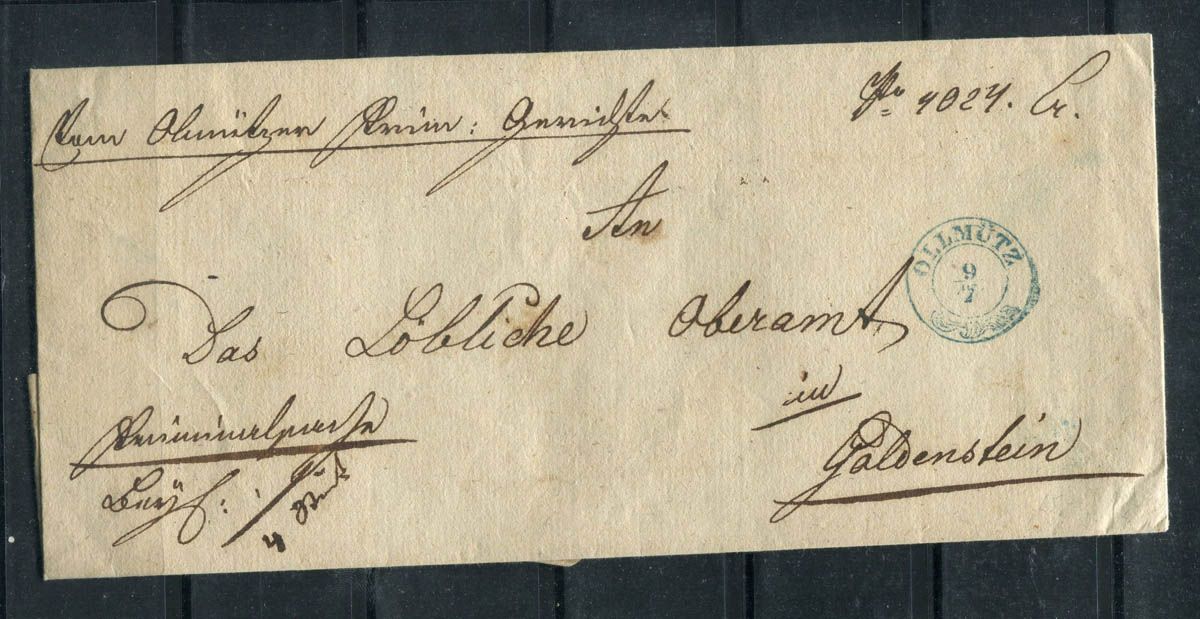 Vom Olmützer Krim: Gerichte
No 4024. Cr.
An
Das Löbliche Oberamt
OLLMÜTZ
9
7
in
Goldenstein
Kriminalsache
Beyl:
4